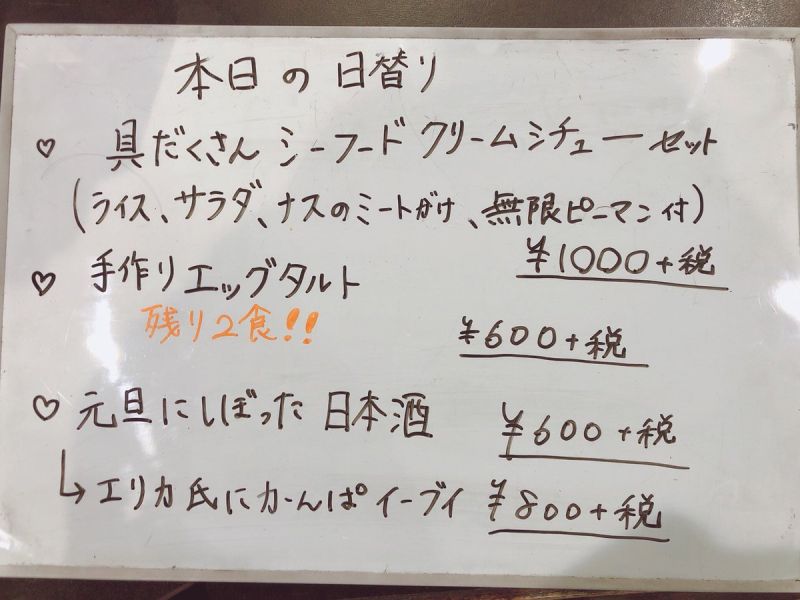 本日の日替り
♡ 具だくさんシーフードクリームシチューセット
(ライス、サラダ、ナスのミートがけ、無限ピーマン付)
¥1000+税
♡ 手作りエッグタルト
残り2食!!
¥600+税
♡ 元旦にしぼった日本酒 ¥600+税
↳ エリカ氏にかーんぱイーブイ ¥800+税